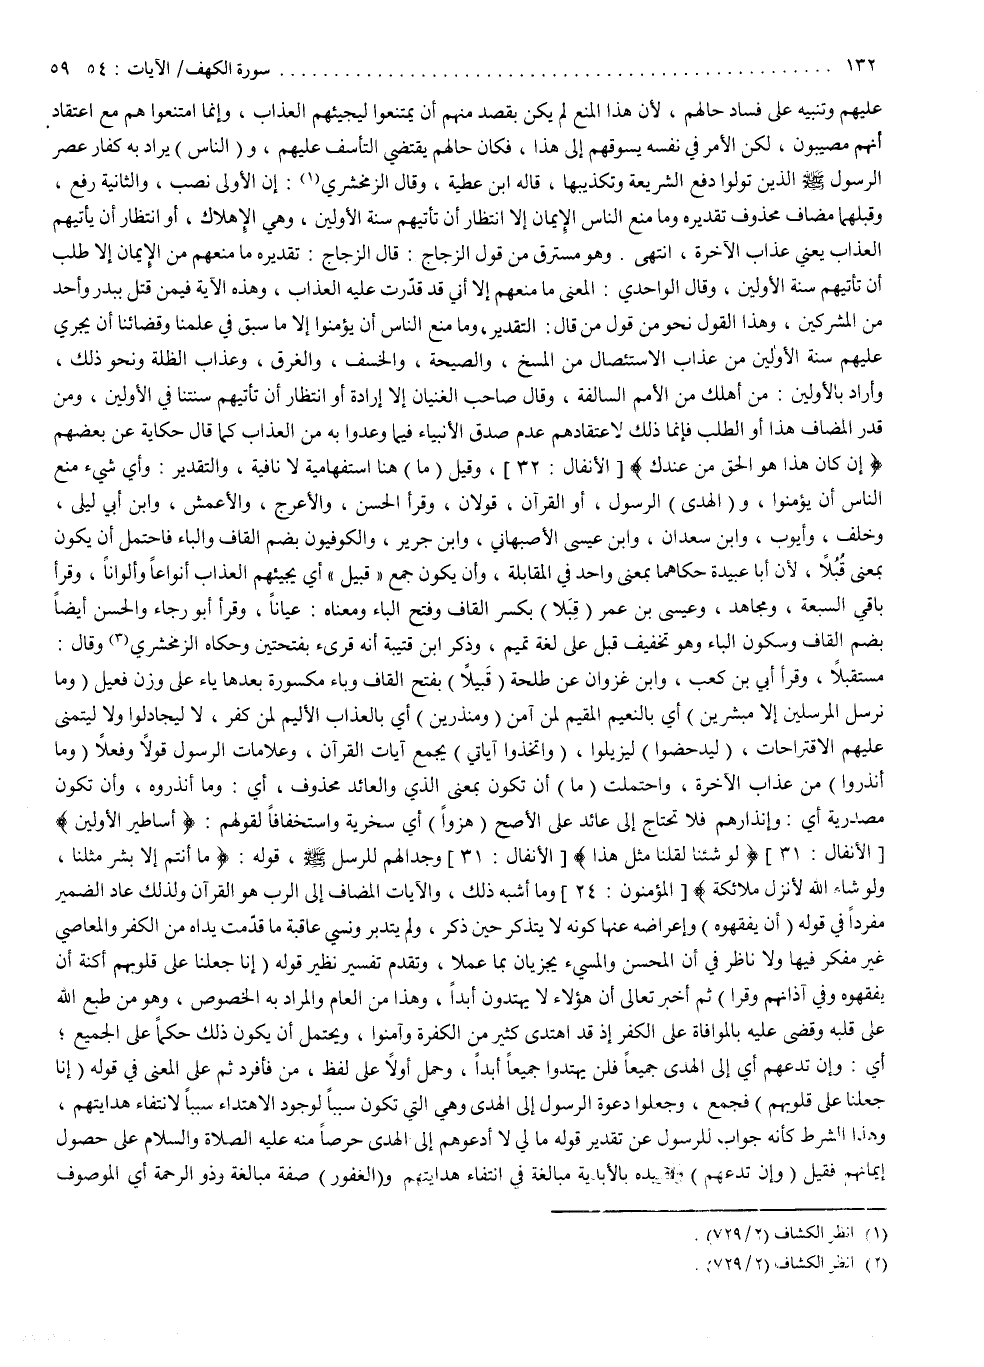 ١٣٢ ........................................ سورة الكهف/ الآيات : ٥٤ ٥٩
عليهم وتنبيه على فساد حالهم ، لأن هذا المنع لم يكن بقصد منهم أن يمتنعوا ليجيئهم العذاب ، وإنما امتنعوا هم مع اعتقاد
أنهم مصيبون ، لكن الأمر في نفسه يسوقهم إلى هذا ، فكان حالهم يقتضي التأسف عليهم ، و ( الناس ) يراد به كفار عصر
الرسول ﷺ الذين تولوا دفع الشريعة وتكذيبها ، قاله ابن عطية ، وقال الزمخشري(١) : إن الأولى نصب ، والثانية رفع ،
وقبلها مضاف محذوف تقديره وما منع الناس الإِيمان إلا انتظار أن تأتيهم سنة الأولين ، وهي الإِهلاك ، أو انتظار أن يأتيهم
العذاب يعني عذاب الآخرة ، انتهى . وهو مسترق من قول الزجاج : قال الزجاج : تقديره ما منعهم من الإِيمان إلا طلب
أن تأتيهم سنة الأولين ، وقال الواحدي : المعنى ما منعهم إلا أني قد قدّرت عليه العذاب ، وهذه الآية فيمن قتل ببدر وأحد
من المشركين ، وهذا القول نحو من قول من قال : التقدير، وما منع الناس أن يؤمنوا إلا ما سبق في علمنا وقضائنا أن يجري
عليهم سنة الأولين من عذاب الاستئصال من المسخ ، والصيحة ، والخسف ، والغرق ، وعذاب الظلة ونحو ذلك ،
وأراد بالأولين : من أهلك من الأمم السالفة ، وقال صاحب الغنيان إلا إرادة أو انتظار أن تأتيهم سنتنا في الأولين ، ومن
قدر المضاف هذا أو الطلب فإنما ذلك لاعتقادهم عدم صدق الأنبياء فيما وعدوا به من العذاب كما قال حكاية عن بعضهم
﴿ إن كان هذا هو الحق من عندك ﴾ [ الأنفال : ٣٢ ] ، وقيل ( ما ) هنا استفهامية لا نافية ، والتقدير : وأي شيء منع
الناس أن يؤمنوا ، و ( الهدى ) الرسول ، أو القرآن ، قولان ، وقرأ الحسن ، والأعرج ، والأعمش ، وابن أبي ليلى ،
وخلف ، وأيوب ، وابن سعدان ، وابن عيسى الأصبهاني ، وابن جرير ، والكوفيون بضم القاف والباء فاحتمل أن يكون
بمعنى قُبُلًا ، لأن أبا عبيدة حكاهما بمعنى واحد في المقابلة ، وأن يكون جمع « قبيل » أي يجيئهم العذاب أنواعاً وألواناً ، وقرأ
باقي السبعة ، ومجاهد ، وعيسى بن عمر ( قِبَلا ) بكسر القاف وفتح الباء ومعناه : عياناً ، وقرأ أبو رجاء والحسن أيضاً
بضم القاف وسكون الباء وهو تخفيف قبل على لغة تميم ، وذكر ابن قتيبة أنه قرىء بفتحتين وحكاه الزمخشري(٣) وقال :
مستقبلاً ، وقرأ أبي بن كعب ، وابن غزوان عن طلحة ( قَبيلاً ) بفتح القاف وباء مكسورة بعدها ياء على وزن فعيل ( وما
نرسل المرسلين إلا مبشرين ) أي بالنعيم المقيم لمن آمن ( ومنذرين ) أي بالعذاب الأليم لمن كفر ، لا ليجادلوا ولا ليتمنى
عليهم الاقتراحات ، ( ليدحضوا ) ليزيلوا ، ( واتخذوا آياتي ) يجمع آيات القرآن ، وعلامات الرسول قولاً وفعلاً ( وما
أنذروا ) من عذاب الآخرة ، واحتملت ( ما ) أن تكون بمعنى الذي والعائد محذوف ، أي : وما أنذروه ، وأن تكون
مصدرية أي : وإنذارهم فلا تحتاج إلى عائد على الأصح ( هزواً ) أي سخرية واستخفافاً لقولهم : ﴿ أساطير الأولين ﴾
[ الأنفال : ٣١ ] ﴿ لو شئنا لقلنا مثل هذا ﴾ [ الأنفال : ٣١ ] وجدالهم للرسل ﷺ ، قوله : ﴿ ما أنتم إلا بشر مثلنا ،
ولو شاء الله لأنزل ملائكة ﴾ [ المؤمنون : ٢٤ ] وما أشبه ذلك ، والآيات المضاف إلى الرب هو القرآن ولذلك عاد الضمير
مفرداً في قوله ( أن يفقهوه ) وإعراضه عنها كونه لا يتذكر حين ذكر ، ولم يتدبر ونسي عاقبة ما قدّمت يداه من الكفر والمعاصي
غير مفكر فيها ولا ناظر في أن المحسن والمسيء يجزيان بما عملا ، وتقدم تفسير نظير قوله ( إنا جعلنا على قلوبهم أكنة أن
يفقهوه وفي آذانهم وقرا ) ثم أخبر تعالى أن هؤلاء لا يهتدون أبداً ، وهذا من العام والمراد به الخصوص ، وهو من طبع الله
على قلبه وقضى عليه بالموافاة على الكفر إذ قد اهتدى كثير من الكفرة وآمنوا ، ويحتمل أن يكون ذلك حكماً على الجميع ؛
أي : وإن تدعهم أي إلى الهدى جميعاً فلن يهتدوا جميعاً أبداً ، وحمل أولاً على لفظ ، من فأفرد ثم على المعنى في قوله ( إنا
جعلنا على قلوبهم ) فجمع ، وجعلوا دعوة الرسول إلى الهدى وهي التي تكون سبباً لوجود الاهتداء سبباً لانتفاء هدايتهم ،
وهذا الشرط كأنه جواب للرسول عن تقدير قوله ما لي لا أدعوهم إلى الهدى حرصاً منه عليه الصلاة والسلام على حصول
إيمانهم فقيل ( وإن تدعهم ) وتقييده بالأبدية مبالغة في انتفاء هدايتهم و(الغفور ) صفة مبالغة وذو الرحمة أي الموصوف
(١) انظر الكشاف (٢/ ٧٢٩) .
(٢) انظر الكشاف (٢/ ٧٢٩) .